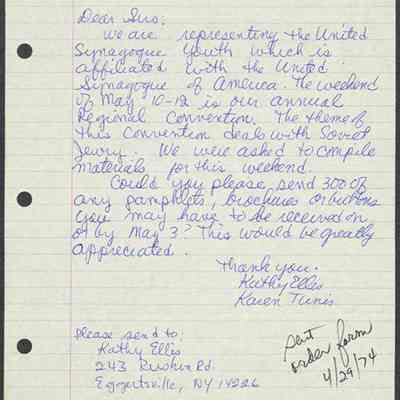 Dear Sirs:
We are representing the United
Synagogue Youth which is
affiliated with the United
Synagogue of America. The weekend
of May 10-12 is our annual
Regional Convention. The theme of
this Convention deals with Soviet
Jewry. We were asked to compile
materials for this weekend.
Could you please, send 300 of
any pamphlets, brochures or buttons
you may have to be received on
or by May 3? This would be greatly
appreciated.
Thank you.
Kathy Ellis
Karen Tunis
Please send to:
Kathy Ellis
243 Ruskin Rd.
Eggertsville, NY 14226
sent
order form
4/29/74